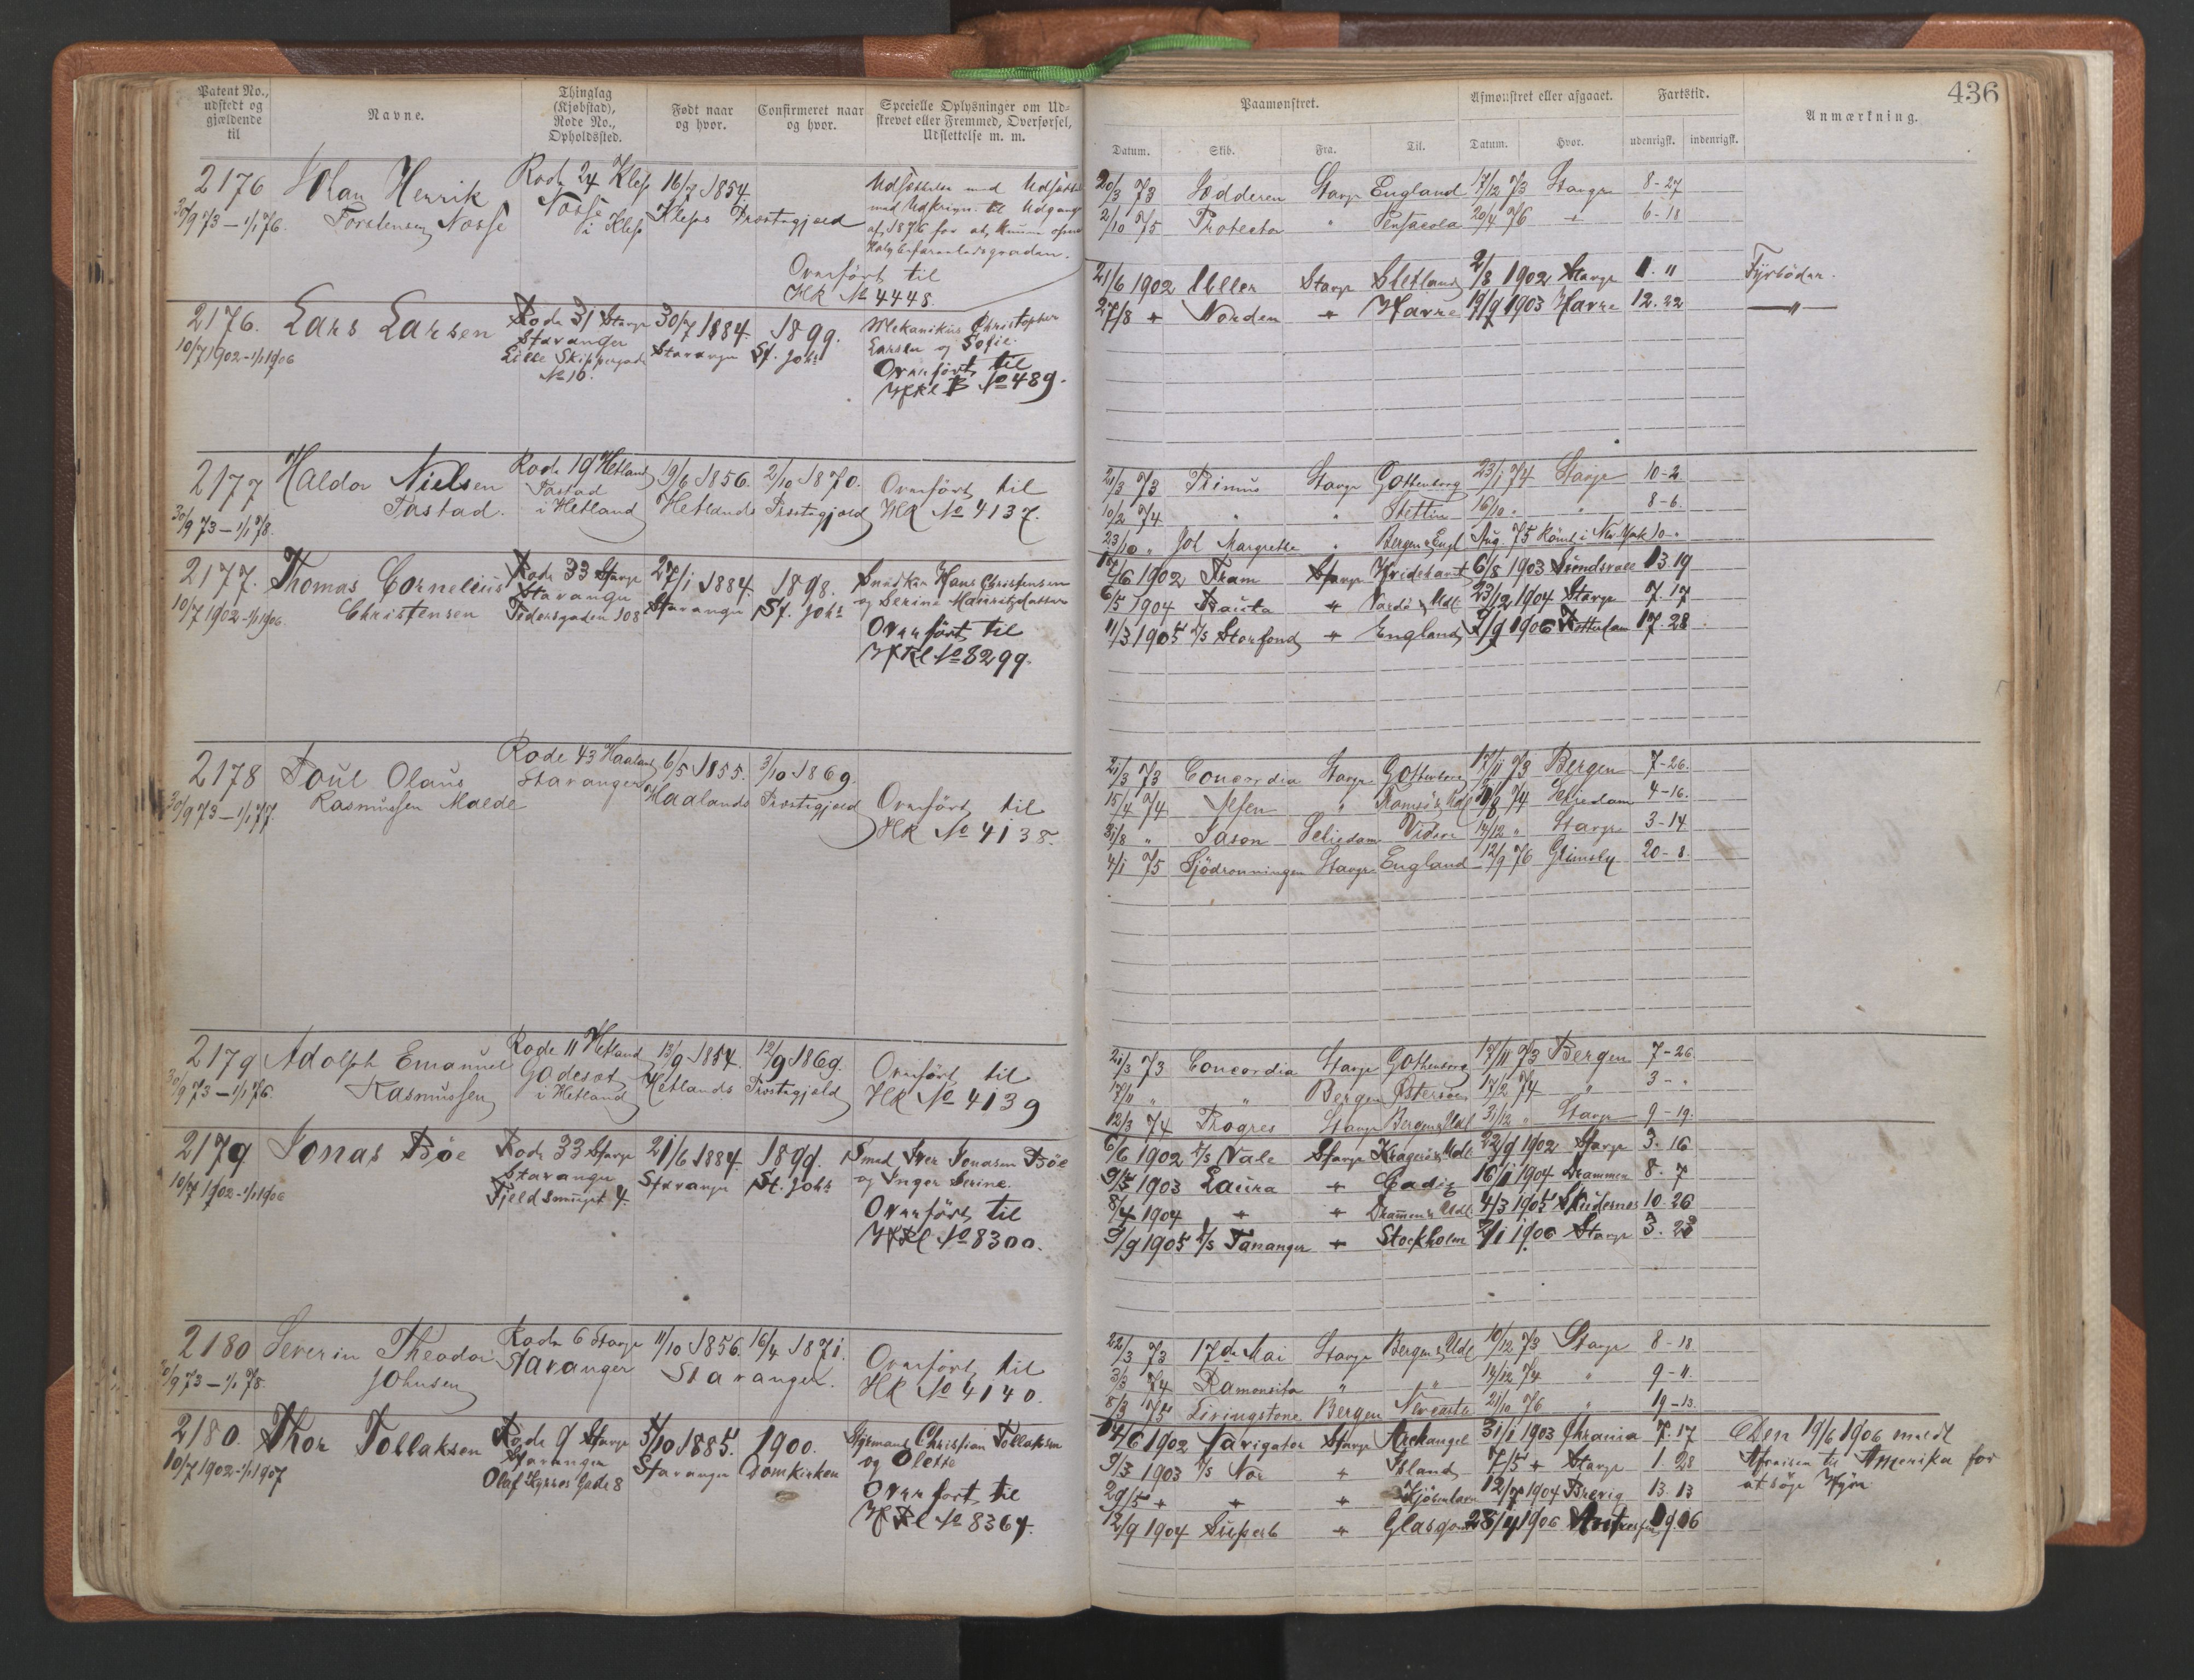 436
Patent No., udstedt og gjældende til
Navne.
Thinglag (Kjøbstad), Rode No., Opholdssted.
Født naar og hvor.
Confirmeret naar og hvor.
Specielle Oplysninger om Udstrevet eller Fremmed, Overførsel, Udslettelse m. m.
Paamønstret.
Afmønstret eller afgaaet.
Fartstid.
Anmærkning.
Datum. Skib. Fra. Til. Datum. Hvor. udenrigsk. indenrigsk.
2176 Johan Henrik Rode 24 Klep 16/7 1854.
30/9 73 – 1/1 76. Torstensen Nosse Nosse i Klep Kleps Præstegjæld
Overført til
HR No 4448.
20/3 73 Jædderen Stavgr England 17/12 73 Stavgr 8-27
2/10 75 Protector " Pensacola 20/4 76 " 6-18
2176. Lars Larsen Rode 31 Stavgr 30/7 1884. 1899.
10/7 1902-1/1 1906 Stavanger Stavanger St. Johs
Lille Skippergade
No 10.
Mekanikus Christopher
Larsen og Sofie.
Overført til
Hfkl B No 489.
21/6 1902 Ellen Stavgr Shetland 2/8 1902 Stavgr 1. " Fyrbøder.
27/8 " Norden " Havre 19/9 1903 Havre 12.22 "
2177 Haldor Nielsen Rode 19 Hetland 19/6 1856. 2/10 1870. Overført til
30/9 73 – 1/1 78. Tastad. Tastad i Hetland Hetlands Præstegjæld HR No 4137.
21/3 73 Primus Stavgr Gottenborg 23/1 74 Stavgr 10-2
10/2 74 " " Stettin 16/10 " " 8-6.
23/10 " Joh Margrethe " Bergen & Engl Aug. 75 Rømt i New York 10-"
2177. Thomas Cornelius Rode 33 Stavgr 27/1 1884. 1898. Snedker Hans Christensen
10/7 1902-1/1 1906. Christensen Stavanger Stavanger St. Johs og Serine Mauritzdatter
Pedersgaden 108
Overført til
Hfkl No 8299.
/6 1902 Fram Stavgr 6/8 1903 Sundsvall 13.19
6/5 1904 Trauta " Vardø & Udl 23/12 1904 Stavgr 7.17
11/3 1905 D/S Storfond " England 2/9 1906 Rotterdam 17.28
2178 Poul Olaus Rode 43 Haaland 6/5 1855. 3/10 1869.
30/9 73 – 1/1 77. Rasmussen Malde Stavanger Haalands Præstegjæld Overført til
HR No 4138.
21/3 73 Concordia Stavgr Gottenborg 17/11 73 Bergen 7-26.
15/4 74 Alfen " /8 74 4-16.
31/8 " Jason Videre 14/12 " Stavgr 3-14
4/1 75 Sjödronningen Stavgr England 12/9 76 Grimsby 20-8.
2179 Adolph Emanuel Rode 11 Hetland 13/9 1854. 12/9 1869. Overført til
30/9 73 – 1/1 76. Rasmussen Godeset i Hetland Hetlands Præstegjæld HR No 4139
21/3 73 Concordia Stavgr Gothenborg 17/11 73 Bergen 7-26
17/11 " " Bergen Østersøen 17/2 74 " 3-"
12/3 74 Progres Stavgr Bergen & Udl 31/12 " Stavgr 9-19.
2179 Jonas Bøe Rode 33 Stavgr 21/6 1884. 1899. Smed Iver Jonasen Bøe
10/7 1902-1/1 1906 Stavanger Stavanger St. Johs og Inger Serine.
Fjeldsmuget 4.
Overført til
Hfkl No 8300.
6/6 1902 D/S Nale Stavgr Kragerø & Udl 22/9 1902 Stavgr 3.16
9/5 1903 Laura " Cadiz 16/1 1904 Drammen 8.7
8/4 1904 " " Drammen & Udl 4/3 1905 Skudesnes 10.26
9/9 1905 D/S Tananger " Stockholm 2/1 1906 Stavgr 3.23
2180 Severin Theodor Rode 6 Stavgr 11/10 1856. 16/4 1871. Overført til
30/9 73 – 1/1 78. Johnsen Stavanger Stavanger. HR No 4140.
22/3 73 17de Mai Stavgr Bergen & Udl 10/12 73 Stavgr 8-18
3/3 74 Ramonsita " " 14/12 74 " 9-11.
8/3 75 Livingstone Bergen Newcastle 21/10 76 " 19-13.
2180. Thor Tollaksen Rode 9 Stavgr 5/10 1885. 1900. Styrmand Christian Tollaksen
10/7 1902-1/1 1907 Stavanger Stavanger Domkirken og Olette
Olaf Kyrres Gade 8
Overført til
Hfkl No 8364.
14/6 1902 Navigator Stavgr Archangel 31/1 1903 Chrania 7.17 Den 19/6 1906 meldt
9/3 1903 D/S Nor " Island 7/5 " Stavgr 1.28 Afreisen til Amerika for
29/5 " " " Kjøbenhavn 12/7 1904 Brevig 13.13 at søge Hyre
12/9 1904 Superb " Glasgow 28/4 1906 19.16